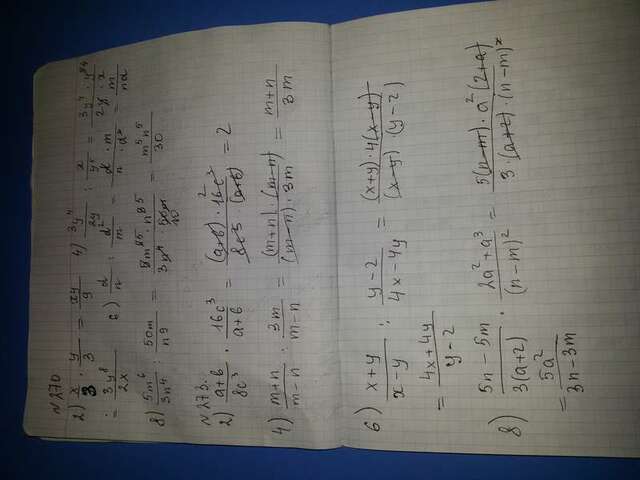 №270
2) x/3 · y/3 = xy/9 4) 3y⁴/2y : x/y⁵ =
= 3y⁸/2x 6) d/n : d²/m = d · m/n · d² = m/nd
8) 5m⁶/3n⁴ : 50m/n9 = 5m⁶⁵ · n⁹⁵/3n⁴ · 50m 10 = m⁵n⁵/30
№273.
2) a+b/8c³ · 16c³/a+b = (a+b) · 16c³ 2/8c³ · (a+b) = 2
4) m+n/m−n : 3m/m−n = (m+n) · (m−n)/(m−n) · 3m = m+n/3m
6) x+y/x−y : y−2/4x−4y = (x+y) · 4(x−y)/(x−y) · (y−2)
= 4x+4y/y−2
8) 5n−5m/3(a+2) · 2a²+a³/(n−m)² = 5(n−m) · a²(2+a)/3 · (a+2) · (n−m)²
= 5a²/3n−3m